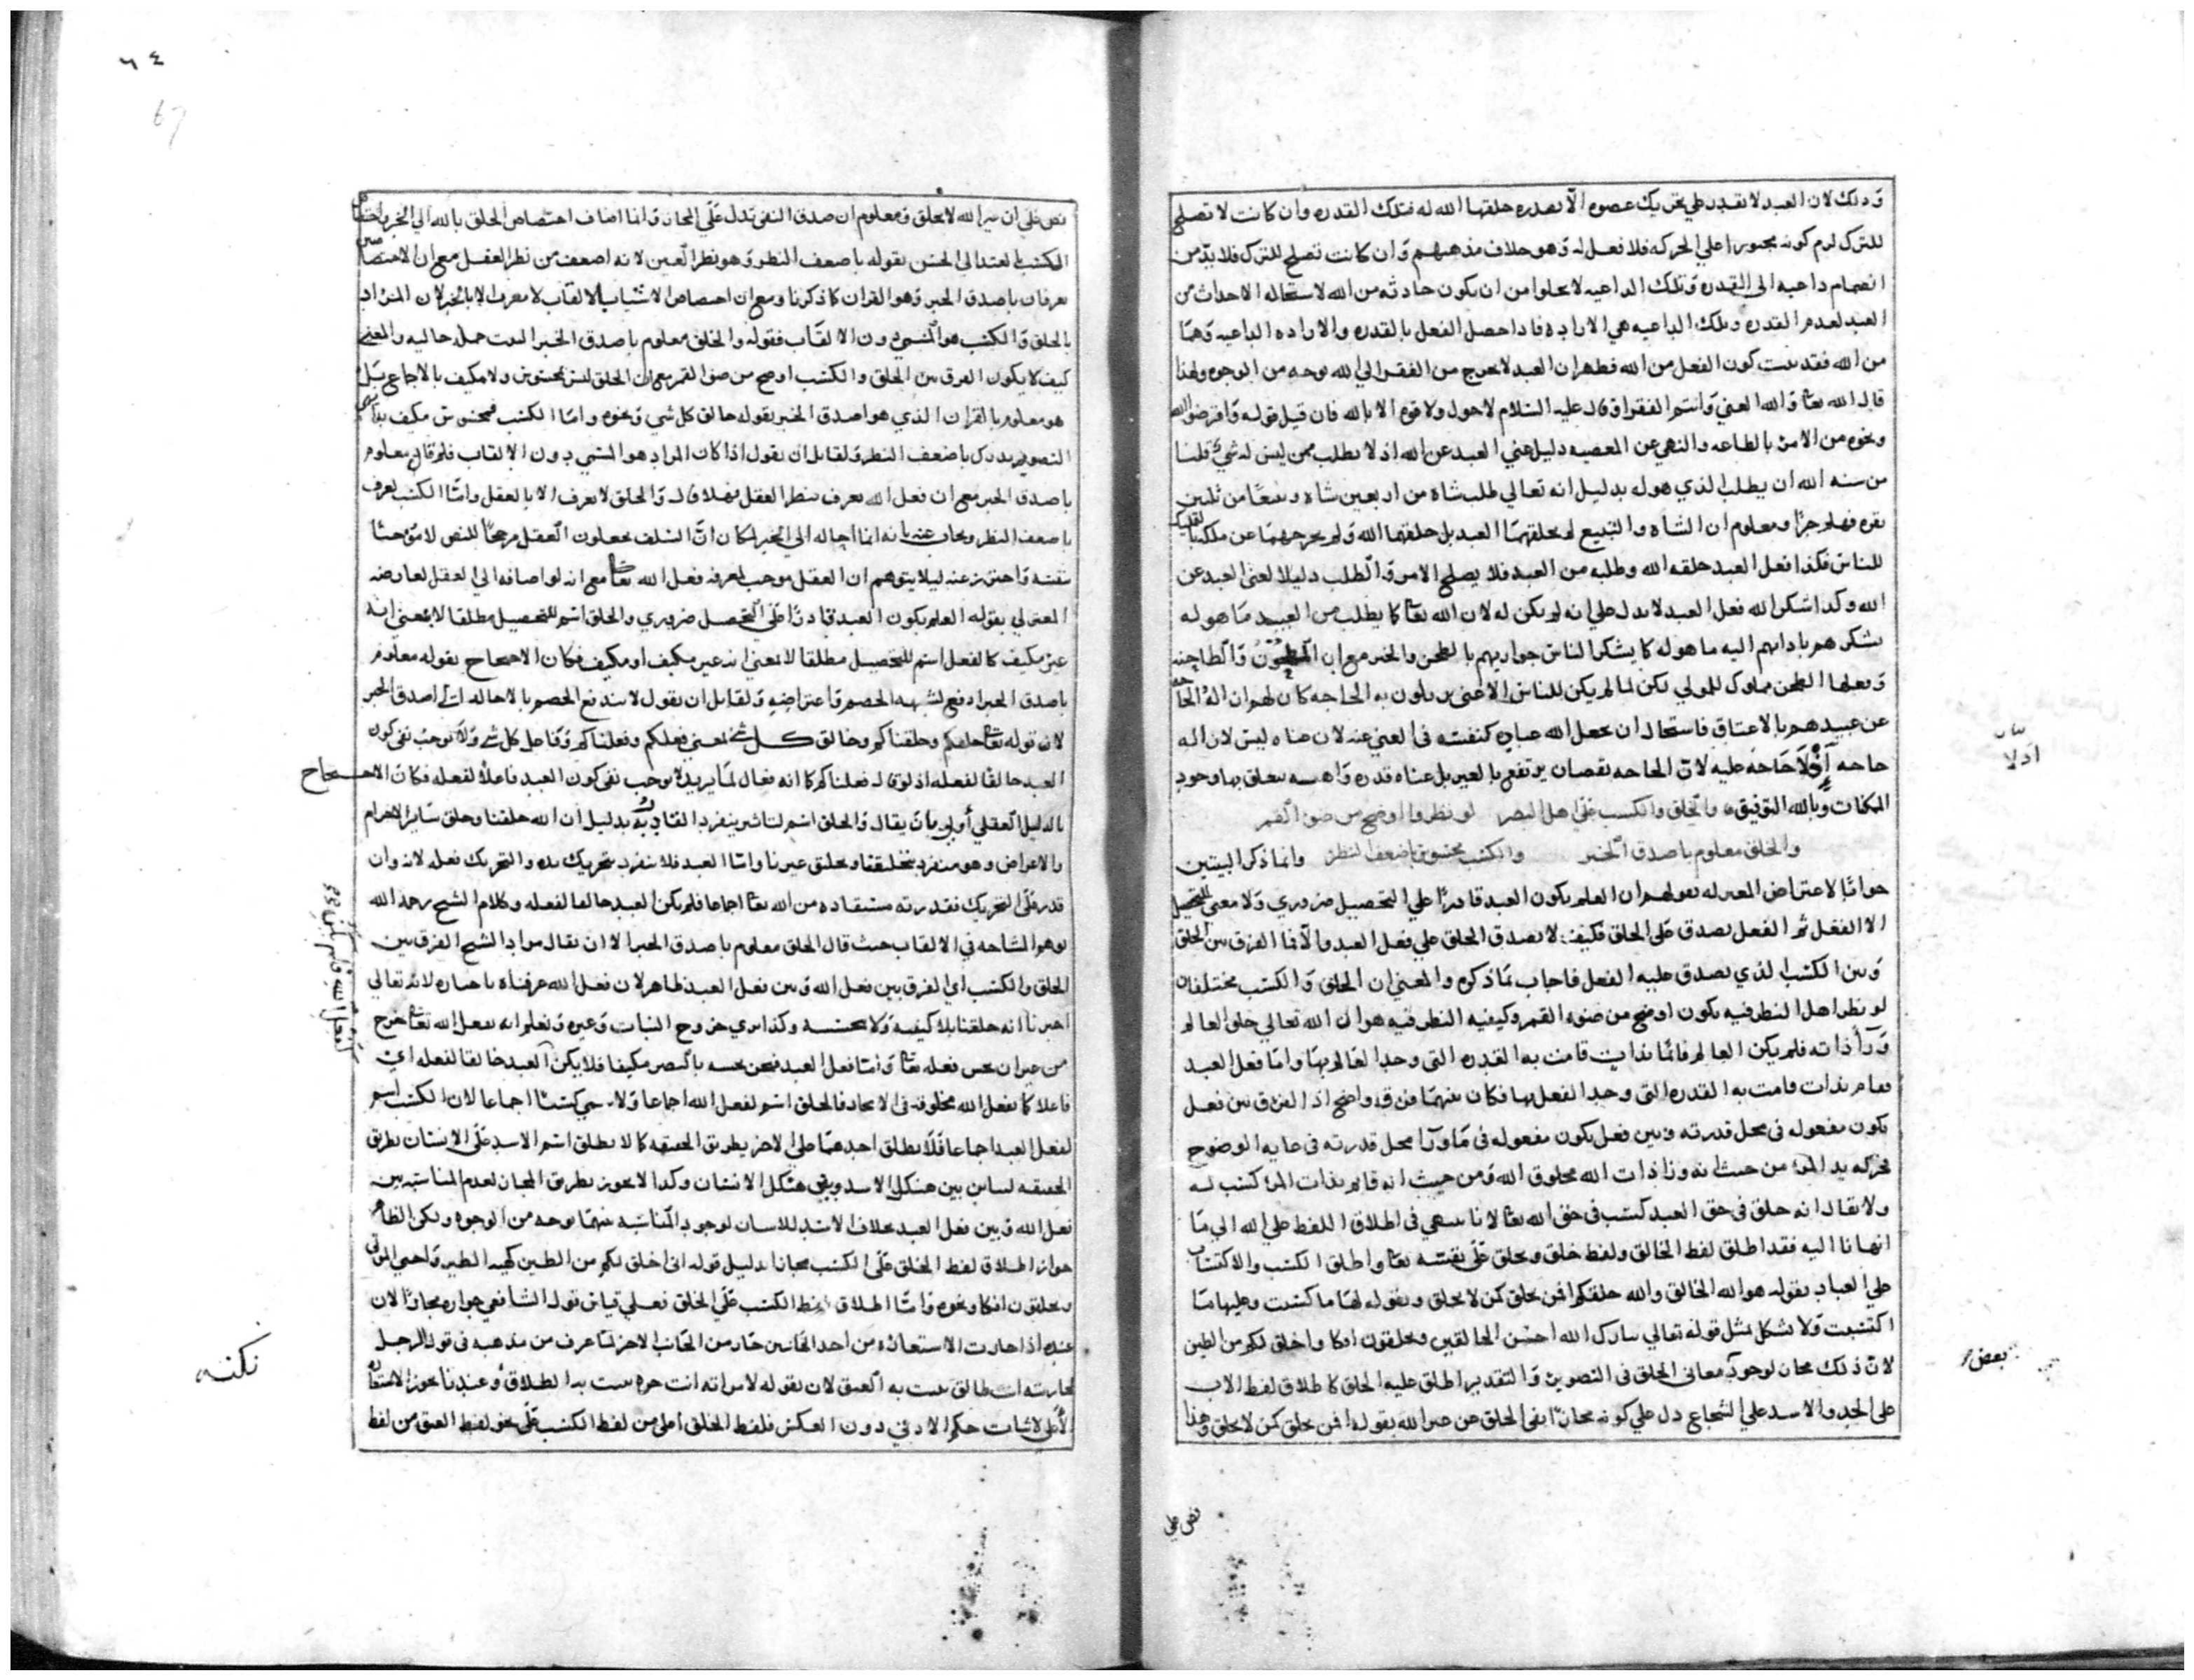 وذلك لان العبد لا يقدر على تحريك عضوه الا بقدره خلقها الله له فتلك القدره وان كانت لا تصلح
للترك لزم كونه مجبورا على الحركه فلا فعل له وهو خلاف مذهبهم وان كانت تصلح للترك فلا بد من
انضمام داعيه الى القدره وتلك الداعيه لا يخلوا من ان يكون حادثه من الله لاستحاله الاحداث من
العبد لعدم القدره وتلك الداعيه هي الاراده فاذا حصل الفعل بالقدره والاراده الداعيه وهما
من الله فقد ثبت كون الفعل من الله فظهر ان العبد لا يخرج من الفقر الى الله بوجه من الوجوه ولهذا
قال الله تعا والله الغني وانتم الفقرا وقال عليه السلام لا حول ولا قوه الا بالله فان قيل قوله واقرضوا الله
ونحوه من الامر بالطاعه والنهي عن المعصيه دليل غني العبد عن الله اذ لا يطلب ممن ليس له شي قلنا
من سنه الله ان يطلب الذي هو له بدليل انه تعالي طلب شاه من اربعين شاه وتبيعا من ثلثين
بقره فهلم جرا ومعلوم ان الشاه والتبيع لم يخلقهما العبد بل خلقهما الله ولم يخرجهما عن ملكه
للناس فكذا فعل العبد خلقه الله وطلبه من العبد فلا يصلح الامر والطلب دليلا لغنى العبد عن
الله وكذا شكر الله فعل العبد لا يدل على انه لم يكن له لان الله تعا كما يطلب من العبيد ما هو له
يشكرهم بادائهم اليه ما هو له كما يشكر الناس جواريهم بالطحن والخبز مع ان المطحون والطاحنه
وفعلها الطحن مملوك للمولي لكن لما لم يكن للناس الاغنى يزيلون به الحاجه كان لهم ازاله الحاجه
عن عبيدهم بالاعتاق فاستحال ان يجعل الله عباده كنفسه في الغنى عنه لان غناه ليس لازاله
حاجه اذ لا حاجه عليه لان الحاجه نقصان يرتفع بالغير بل غناه قدره واهـيه يتعلق بها وجود
الممكنات وبالله التوفيق والخلق والكسب على اهل البصر لو نظروا اوضح من ضو القمر
والخلق معلوم باصدق الخبر والكسب محسوس باضعف النظر وانما ذكر البيتين
جوابا لاعتراض المعتزله بقولهم ان العلم بكون العبد قادرا علي التحصيل ضروري ولا معنى للتحصيل
الا الفعل ثم الفعل يصدق على الخلق فكيف لا يصدق الخلق علي فعل العبد والا فما الفرق بين الخلق
وبين الكسب الذي يصدق عليه الفعل فاجاب بما ذكره والمعنى ان الخلق والكسب مختلفان
لو نظر اهل النظر فيه يكون اوضح من ضوء القمر وكيفيه النظر فيه هو ان الله تعالي خلق العالم
ورا ذاته فلم يكن العالم قائما بذات قامت به القدره التي وجد العالم بها واما فعل العبد
فقام بذات قامت به القدره التي وجد الفعل بها فكان بينهما فرق واضح اذ الفرق بين فعل
يكون مفعوله في محل قدرته وبين فعل يكون مفعوله في ما ورا محل قدرته في غايه الوضوح
فحركه يد المرء من حيث انه ورا ذات الله مخلوق الله ومن حيث انه قائم بذات المرء كسب له
ولا يقال انه خلق في حق العبد كسب في حق الله تعا لانا ننتهي في اطلاق اللفظ على الله الى ما
انهانا اليه فقد اطلق لفظ الخالق ولفظ خلق ويخلق على نفسه تعا واطلق الكسب والاكتساب
على العباد بقوله هو الله الخالق والله خلقكم افمن يخلق كمن لا يخلق وبقوله لها ما كسبت وعليها ما
اكتسبت ولا يشكل بمثل قوله تعالي تبارك الله احسن الخالقين وتخلقون افكا واخلق لكم من الطين
لان ذلك مجاز لوجود معاني الخلق في التصوير والتقدير اطلق عليه الخلق كاطلاق لفظ الاب
على الجد والاسد علي الشجاع دل علي كونه مجازا نفي الخلق عن غير الله بقوله افمن يخلق كمن لا يخلق وهذا
نص على
اولا
بعض
٦٤
67
نص على ان غير الله لا يخلق ومعلوم ان صدق النفي يدل على المجاز وانما اضاف اختصاص الخلق بالله الي الخبر واختصاص
الكسب بالعبد الى الحس بقوله باضعف النظر وهو نظر العين لانه اضعف من نظر العقل مع ان الاختصاصين
يعرفان باصدق الخبر وهو القران كما ذكرنا ومع ان اختصاص الاشيا بالالقاب لا يعرف الا بالخبر لان المراد
بالخلق والكسب هو المسمى دون الالقاب فقوله والخلق معلوم باصدق الخبر البيت جمله حاليه والمعنى
كيف لا يكون الفرق بين الخلق والكسب اوضح من ضو القمر مع ان الخلق ليس بمحسوس ولا مكيف بالاجماع بل
هو معلوم بالقران الذي هو اصدق الخبر بقوله خالق كل شي ونحوه واما الكسب فمحسوس مكيف
التصوير يدرك باضعف النظر ولقائل ان يقول اذا كان المراد هو المسمي دون الالقاب فلم قال معلوم
باصدق الخبر مع ان فعل الله يعرف بنظر العقل فهلا قال والخلق لا يعرف الا بالعقل واما الكسب يعرف
باضعف النظر ويجاب عنه بانه انما احاله الي الخبر لمكان ان السلف يجعلون العقل مرجحا للنص لا موجبا
بنفسه واحترز عنه ليلا يتوهم ان العقل موجب لمعرفه فعل الله تعا مع انه لو اضافه الى العقل لعارضه
المعتزلي بقوله العلم بكون العبد قادرا على التحصيل ضروري والخلق اسم للتحصيل مطلقا لا بمعنى انه
غير مكيف كالفعل اسم للتحصيل مطلقا لا بمعنى انه غير مكيف او مكيف فكان الاحتجاج بقوله معلوم
باصدق الخبر ادفع لشبهه الخصم واعتراضه ولقائل ان يقول لا يندفع الخصم بالاحاله الى اصدق الخبر
لان قوله تعا خلقكم وخلقناكم وخالق كل شي بمعنى فعلكم وفعلناكم وفاعل كل شي ولا يوجب نفي كون
العبد خالقا لفعله اذ لو قال فعلناكم كما انه فعال لما يريد لا يوجب نفي كون العبد فاعلا لفعله فكان الاحتجاج
بالدليل العقلي أولى بان يقال والخلق اسم لتاثير ينفرد القادر به بدليل ان الله خلقنا وخلق سائر الاجرام
والاعراض وهو منفرد بتخليقنا وبخلق غيرنا واما العبد فلا ينفرد بتحريك يده والتحريك فعله لانه وان
قدر على التحريك فقدرته مستفاده من الله تعا اجماعا فلم يكن العبد خالقا لفعله وكلام الشيخ رحمه الله
يوهم المشاحه في الالقاب حيث قال الخلق معلوم باصدق الخبر الا ان يقال مراد الشيخ الفرق بين
الخلق والكسب اي الفرق بين فعل الله وبين فعل العبد ظاهر لان فعل الله عرفناه باخباره لانه تعالي
اخبرنا انه خلقنا بلا كيفيه ولا نحسه وكذا نرى خروج النبات وغيره ونعلم انه بفعل الله تعا خرج
من غير ان نحس فعله تعا واما فعل العبد فنحن نحسه بالبصر مكيفا فلا يكن العبد خالقا لفعله اي
فاعلا كما يفعل الله مخلوقه في الايجاد فالخلق اسم لفعل الله اجماعا ولا يسمى كسبا اجماعا لان الكسب اسم
لفعل العبد اجماعا فلا يطلق احدهما على الاخر بطريق الحقيقه كما لا يطلق اسم الاسد على الانسان بطريق
الحقيقه لتباين بين هيكل الاسد وبين هيكل الانسان وكذا لا يجوز بطريق المجاز لعدم المناسبه بين
فعل الله وبين فعل العبد بخلاف الاسد للانسان لوجود المناسبه بينهما بوجه من الوجوه ولكن الظاهر
جواز اطلاق لفظ الخلق على الكسب مجازا بدليل قوله انى اخلق لكم من الطين كهيه الطير واحيي الموتى
وتخلقون افكا ونحوه واما اطلاق لفظ الكسب على الخلق فعلي قياس قول الشافعي جوازه مجازا لان
عنده اذا جازت الاستعاره من احد الجانبين جاز من الجانب الاخر لما عرف من مذهبه في قول الرجل
لجاريته انت طالق يثبت به العتق لان بقوله لامراته انت حره يثبت به الطلاق وعندنا يجوز استعاره
الاعلى لاثبات حكم الادنى دون العكس فلفظ الخلق اعلى من لفظ الكسب على نحو لفظ العتق من لفظ
نكته